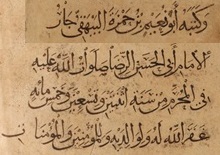 وكتبه أبو نعيم بن حمزة البيهقي جار
الامام أبي الحسن الرضا صلوات الله عليه
في المحرم من سنة اثنتين وتسعين وخمس مائه
غفر الله له ولوالديه وللمؤمنين والمؤمنات